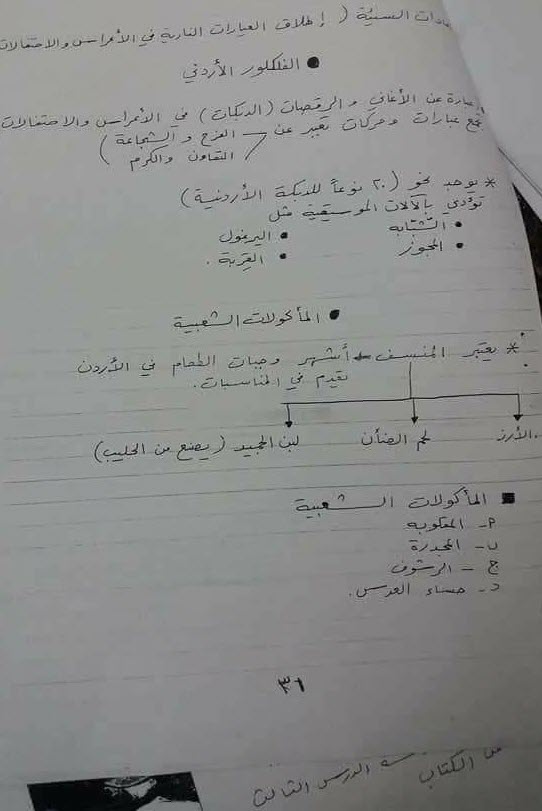 ادات السيئة ( إطلاق العيارات النارية في الأعراس والاحتفالات
● الفلكلور الأردني
عبارة عن الأغاني والرقصات (الدبكات) في الأعراس والاحتفالات
مع عبارات وحركات تعبر عن الفرح والشجاعة
التعاون والكرم )
* يوجد نحو (٢٠ نوعاً للدبكة الأردنية)
تؤدى بالآلات الموسيقية مثل
● الشبابه ● اليرغول
● المجوز ● القربة .
● المأكولات الشعبية
* يعتبر المنسف أشهر وجبات الطعام في الأردن
يقدم في المناسبات .
الأرز لحم الضأن لبن الجميد (يصنع من الحليب)
■ المأكولات الشعبية
أ- المقلوبه
ب- المجدرة
ج - الرشوف
د- حساء العدس .
٣١
من الكتاب الدرس الثالث